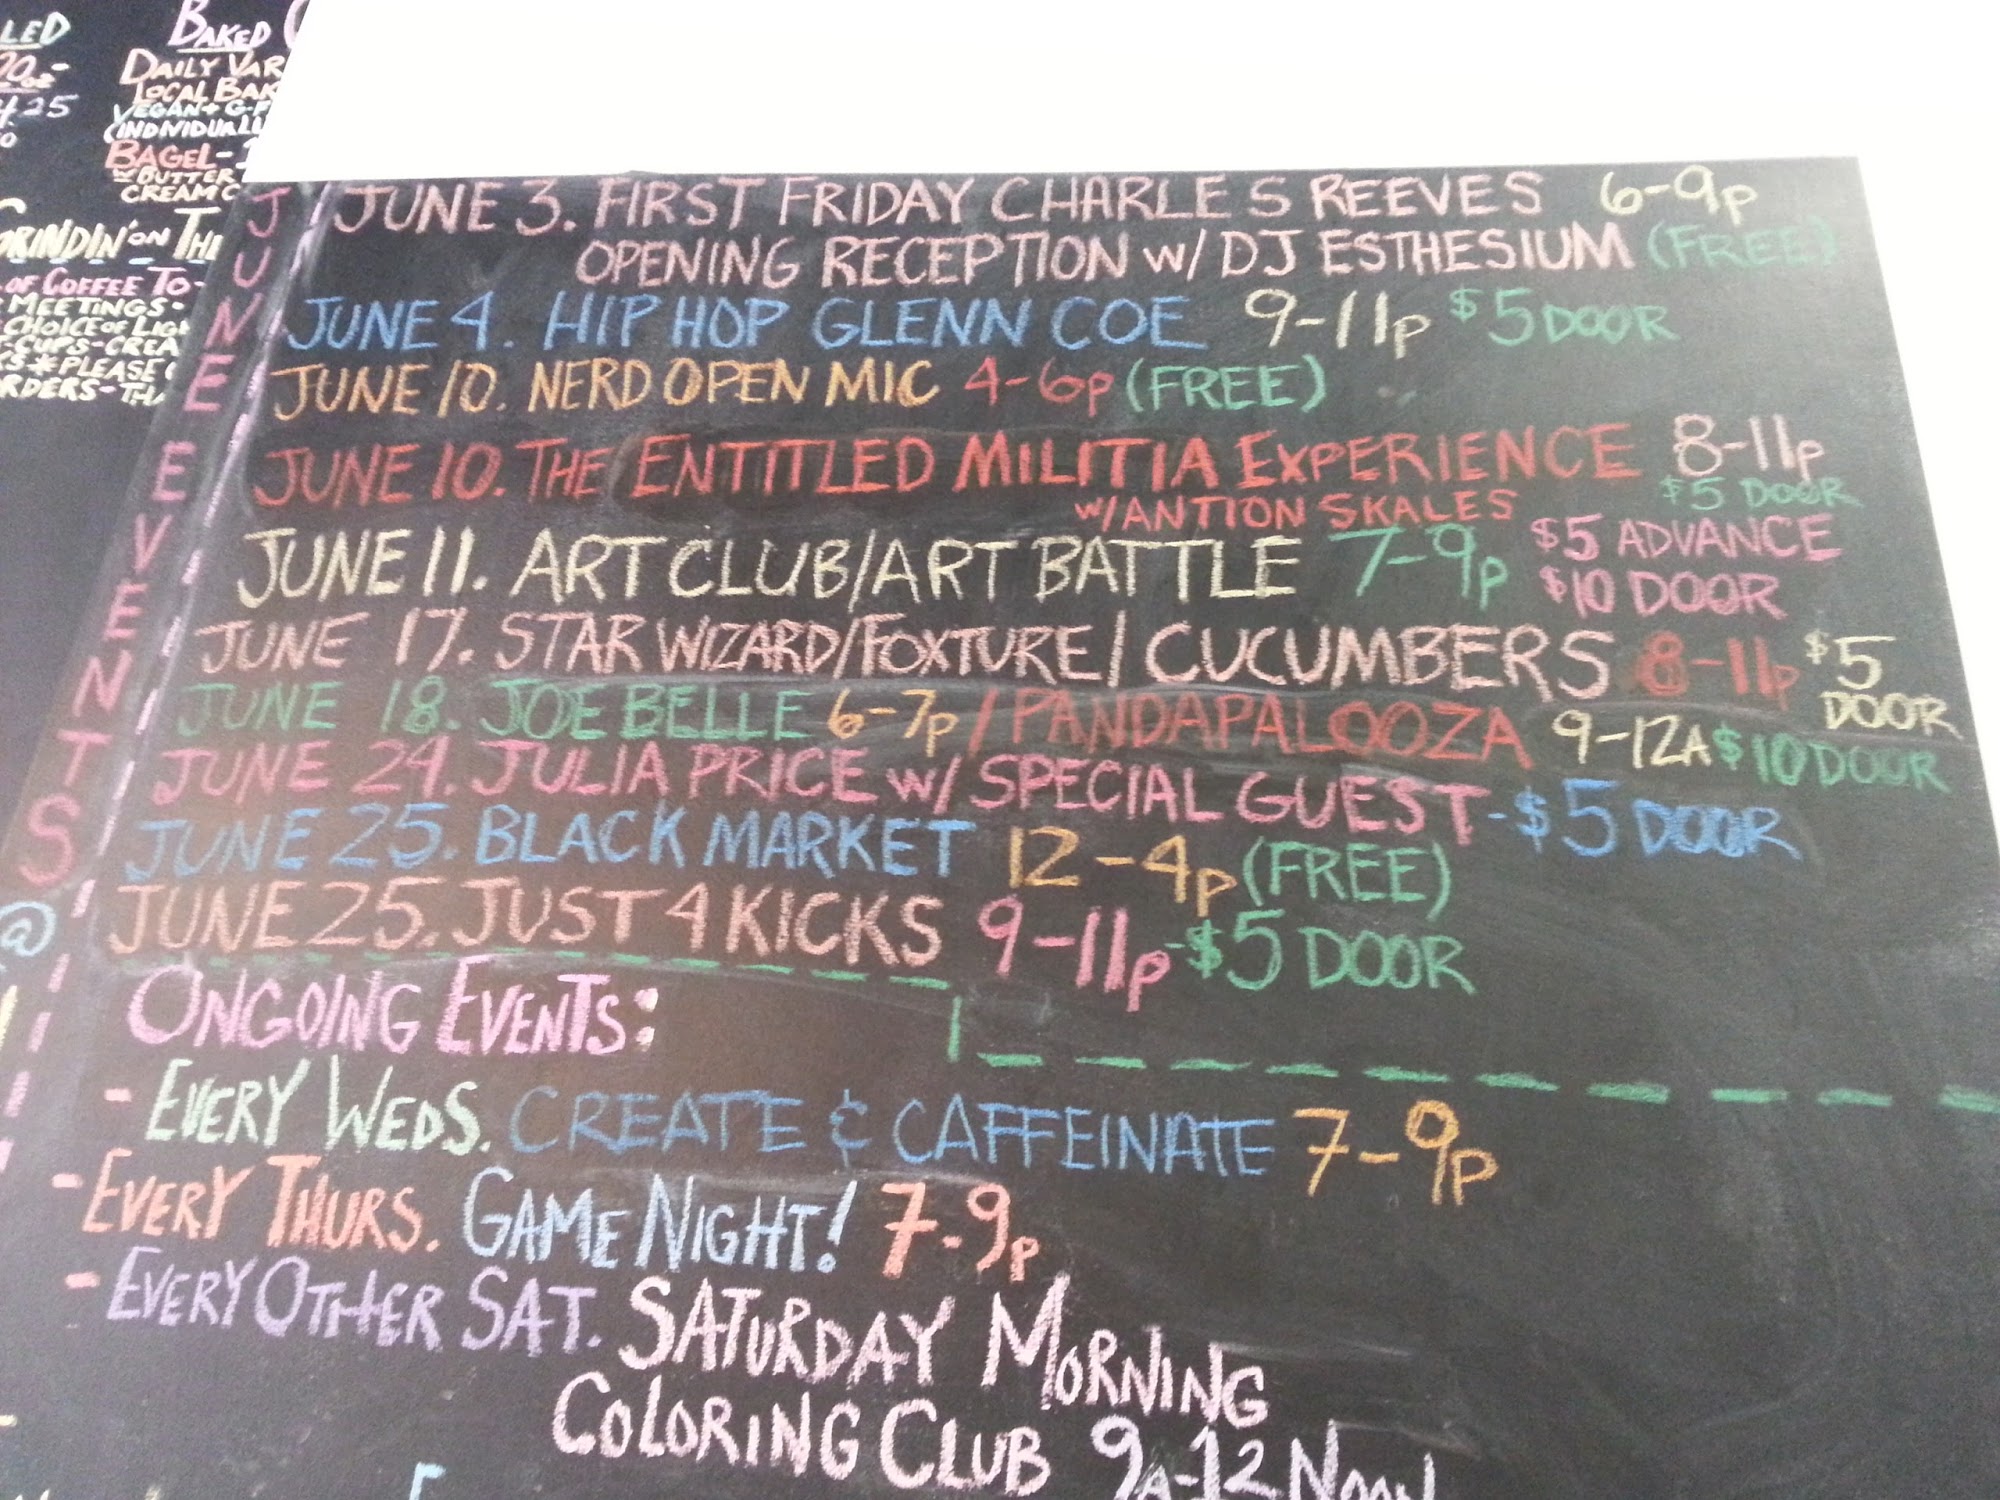 LED
BAKED
DAILY
LOCAL
VEGAN +
4.25
BAGEL-
W/ BUTTER
CREAM
GRINDIN' ON
OF COFFEE TO-
MEETINGS-
CHOICE OF
CUPS-
*PLEASE
JUNE EVENTS
JUNE 3. FIRST FRIDAY CHARLES REEVES 6-9p
OPENING RECEPTION w/ DJ ESTHESIUM (FREE)
JUNE 4. HIP HOP GLENN COE 9-11p $5 DOOR
JUNE 10. NERD OPEN MIC 4-6p (FREE)
JUNE 10. THE ENTITLED MILITIA EXPERIENCE 8-11p
w/ ANTION SKALES $5 DOOR
JUNE 11. ART CLUB/ART BATTLE 7-9p $5 ADVANCE
$10 DOOR
JUNE 17. STAR WIZARD/FOXTURE/CUCUMBERS 8-11p $5
DOOR
JUNE 18. JOE BELLE 6-7p / PANDAPALOOZA 9-12A $10 DOOR
JUNE 24. JULIA PRICE w/ SPECIAL GUEST - $5 DOOR
JUNE 25. BLACK MARKET 12-4p (FREE)
JUNE 25. JUST 4 KICKS 9-11p - $5 DOOR
@
ONGOING EVENTS:
- EVERY WEDS. CREATE & CAFFEINATE 7-9p
- EVERY THURS. GAME NIGHT! 7-9p
- EVERY OTHER SAT. SATURDAY MORNING
COLORING CLUB 9A-12 NOON